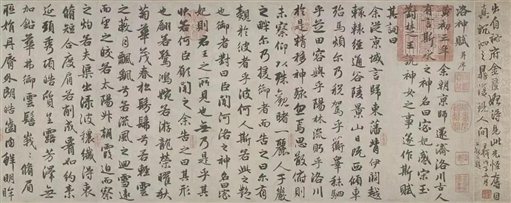 出自秘府金匱難得見此尤
洛神賦
黃初三年余朝京師還濟洛川古人
有言斯水之神名曰宓妃感宋玉
對楚王說神女之事遂作斯賦
其詞曰
余從京域言歸東藩背伊闕越
轘轅經通谷陵景山日既西傾車
殆馬煩尔乃稅駕乎蘅皋秣駟
乎芝田容與乎陽林流眄乎洛川
於是精移神駭忽焉思散俯則
未察仰以殊觀睹一麗人于巖
之畔尔乃援御者而告之曰尔有
覿於彼者乎彼何人斯若此之豔
也御者對曰臣聞河洛之神名曰宓
妃則君王之所見也無乃是乎其
狀若何臣願聞之余告之曰其形
也翩若驚鴻婉若游龍榮曜秋
菊華茂春松髣髴兮若輕雲
之蔽月飄颻兮若流風之迴雪遠
而望之皎若太陽升朝霞迫而察
之灼若芙蕖出淥波穠纖得衷
脩短合度肩若削成腰如約素
延頸秀項皓質呈露芳澤無
加鉛華弗御雲髻峩峩脩眉
聯娟丹脣外朗皓齒内鮮明眸